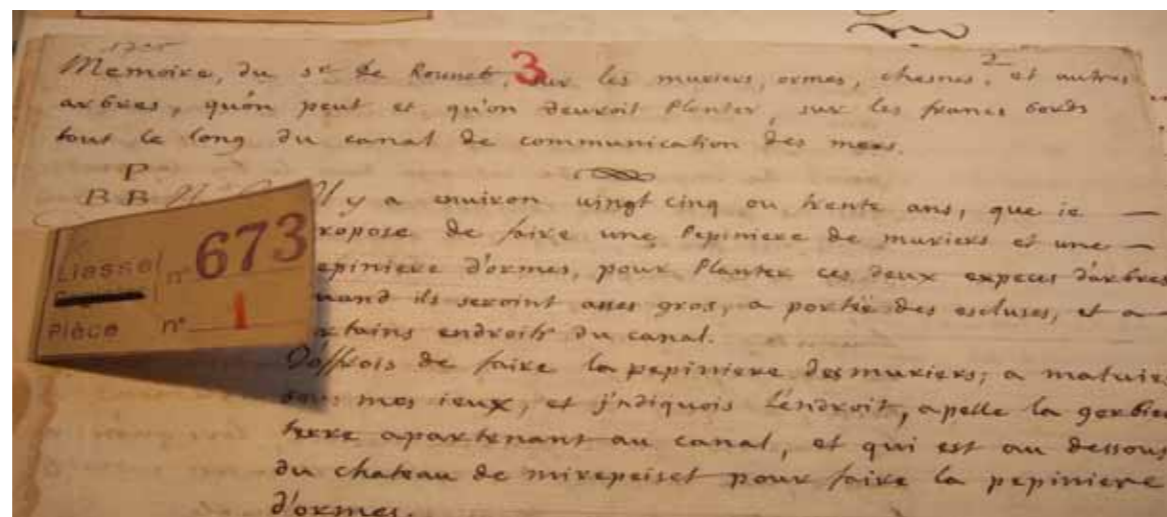 1725
Memoire, du sr de Rounel, 3 sur les muriers, ormes, chesnes, 2 et autres
arbres, qu'on peut et qu'on deuroit Planter, sur les francs bords
tout le long du canal de communication des mers.
P
B B
Il y a enuiron uingt cinq ou trente ans, que ie
ropose de faire une Pepiniere de muriers et une
epiniere d'ormes, pour Planter ces deux especes d'arbres
uand ils seroint asses gros, a portée des escluses, et a
rtains endroits du canal.
J'offrois de faire la pepiniere des muriers, a matuire
sous mes ieux, et j'ndiquois L'endroit, apelle la gerbie
terre apartenant au canal, et qui est au dessous
du chateau de mirepeiset pour faire la pepiniere
d'ormes.
Liasse n° 673
Pièce n° 1